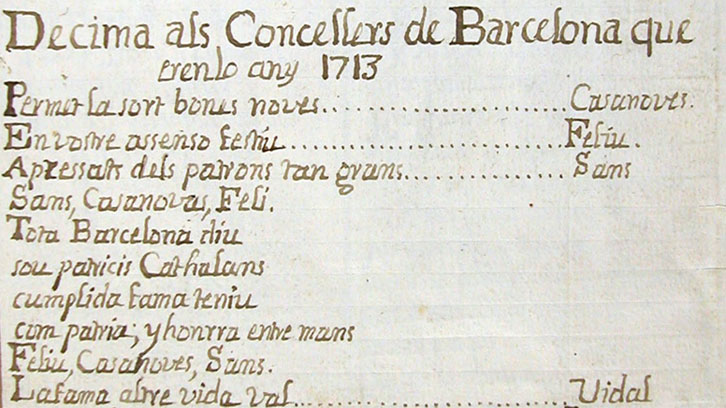 Decima als Concellers de Barcelona que
eren lo any 1713
Permet la sort bones noves........................Casanoves.
En vostre assenso festiu..............................Feliu.
Apressats dels patrons tan grans................Sans
Sans, Casanovas, Feli.
Tota Barcelona diu
sou patricis Cathalans
cumplida fama teniu
com patria; y honrra entre mans
Feliu, Casanoves, Sans.
La fama altre vida val...........................Vidal